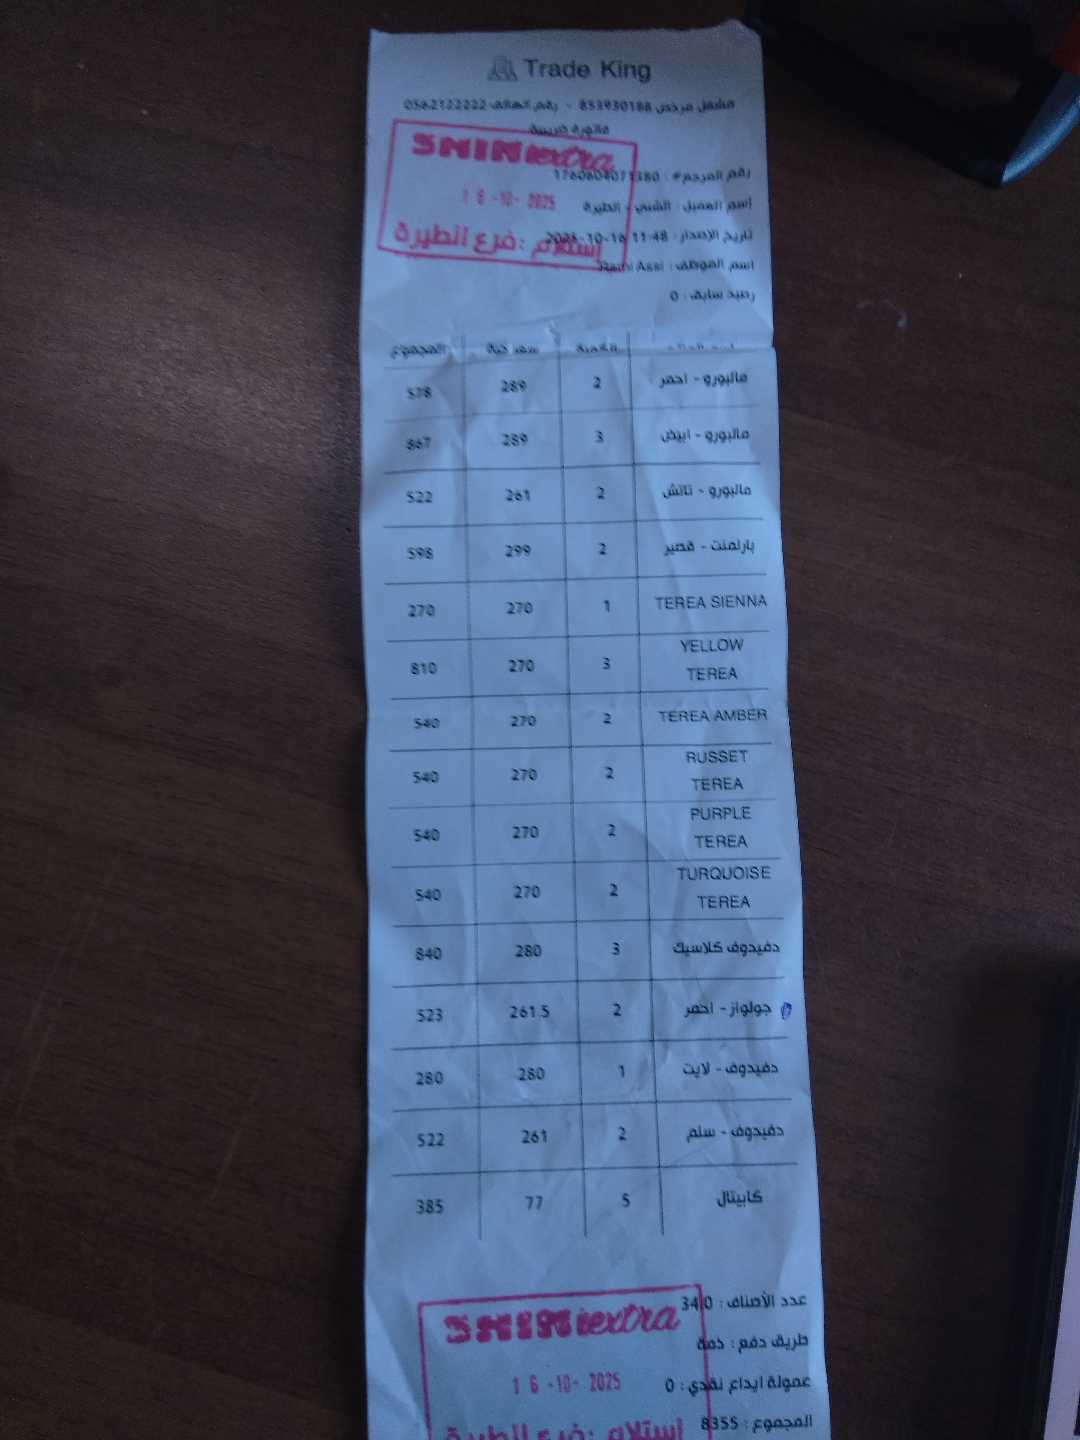 Trade King
مشغل مرخص 853930188 - رقم الهاتف 0562122222
فاتورة ضريبية
رقم المرجع# : 1760604071380
إسم العميل : الشني - الطيرة
تاريخ الإصدار : 11:48 2025-10-16
اسم الموظف : Rami Assi
رصيد سابق : 0
SHINI extra
16-10-2025
إستلام : فرع الطيرة
الكمية سعر حبة المجموع
مالبورو - احمر 2 289 578
مالبورو - ابيض 3 289 867
مالبورو - تاتش 2 261 522
بارلمنت - قصير 2 299 598
TEREA SIENNA 1 270 270
YELLOW
TEREA 3 270 810
TEREA AMBER 2 270 540
RUSSET
TEREA 2 270 540
PURPLE
TEREA 2 270 540
TURQUOISE
TEREA 2 270 540
دفيدوف كلاسيك 3 280 840
جولواز - احمر 2 261.5 523
دفيدوف - لايت 1 280 280
دفيدوف - سلم 2 261 522
كابيتال 5 77 385
عدد الأصناف : 34.0
طريق دفع : ذمة
عمولة ايداع نقدي : 0
المجموع : 8355
SHINI extra
16-10-2025
إستلام : فرع الطيرة